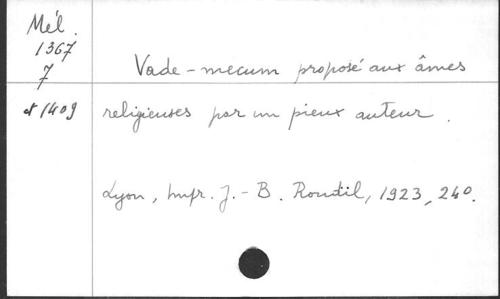 Mél.
1367
7
et 1409
Vade-mecum proposé aux âmes
religieuses par un pieux auteur.
Lyon, Impr. J.-B. Roudil, 1923, 24°.